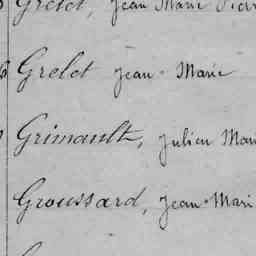 Grelet, Jean Marie Pier
Grelet Jean Marie
Grimault, Julien Mari
Groussard, Jean Mari